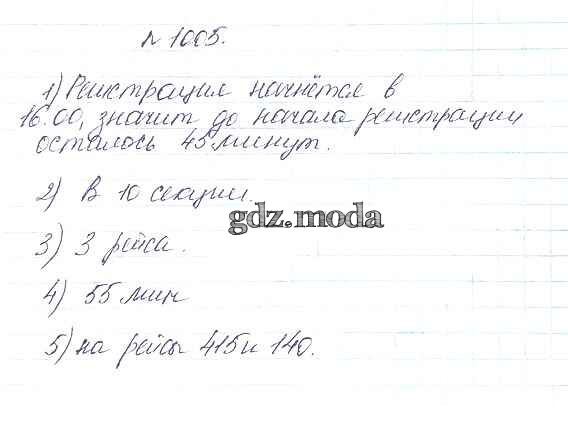 № 1005.
1) Регистрация начнётся в
16:00, значит до начала регистрации
осталось 45 минут.
2) В 10 секции.
gdz.moda
3) 3 рейса.
4) 55 мин
5) на рейсы 415 и 140.